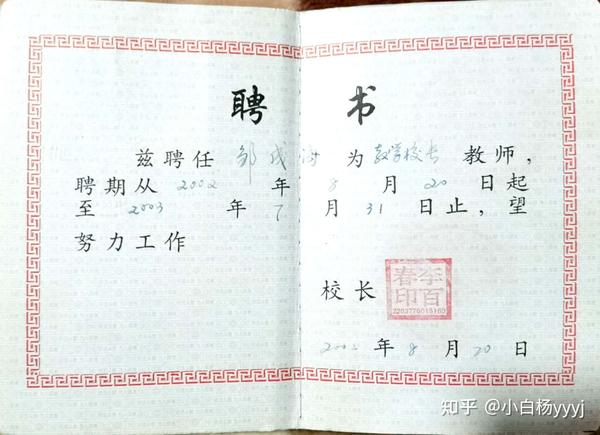 聘 书
兹聘任 邹成海 为 教学校长 教师,
聘期从 2002 年 8 月 20 日起
至 2003 年 7 月 31 日止, 望
努力工作
校长
李百春印
2203770015160
2002 年 8 月 20 日
知乎 @小白杨yyyj